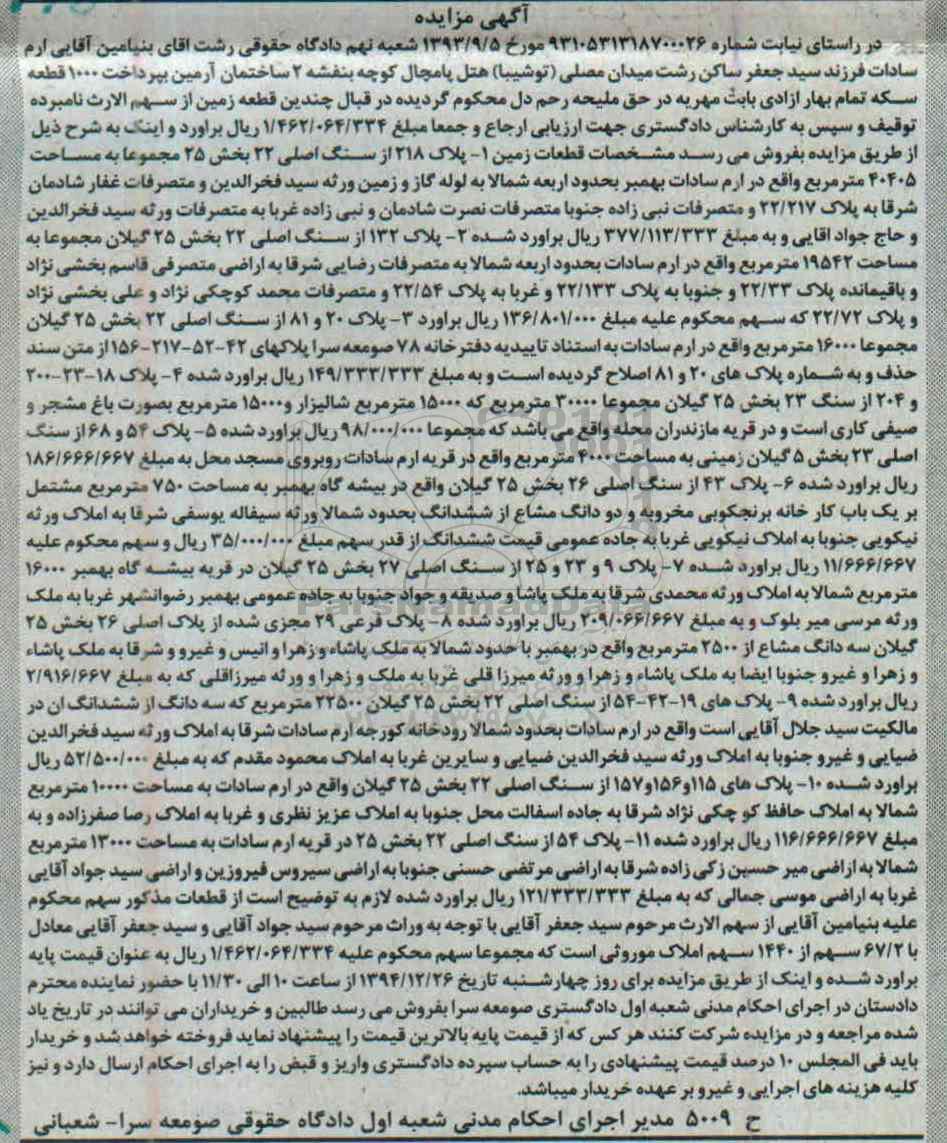 آگهی مزایده
در راستای نیابت شماره ۹۳۱۰۵۳۱۳۱۸۷۰۰۰۲۶ مورخ ۱۳۹۳/۹/۵ شعبه نهم دادگاه حقوقی رشت اقای بنیامین آقایی ارم
سادات فرزند سید جعفر ساکن رشت میدان مصلی (توشیبا) هتل پامچال کوچه بنفشه ۲ ساختمان آرمین بپرداخت ۱۰۰۰ قطعه
سکه تمام بهار ازادی بابت مهریه در حق ملیحه رحم دل محکوم گردیده در قبال چندین قطعه زمین از سهم الارث نامبرده
توقیف و سپس به کارشناس دادگستری جهت ارزیابی ارجاع و جمعا مبلغ ۱/۴۶۲/۰۶۴/۳۳۴ ریال براورد و اینک به شرح ذیل
از طریق مزایده بفروش می رسد مشخصات قطعات زمین ۱- پلاک ۲۱۸ از سنگ اصلی ۲۲ بخش ۲۵ مجموعا به مساحت
۴۰۴۰۵ مترمربع واقع در ارم سادات بهمبر بحدود اربعه شمالا به لوله گاز و زمین ورثه سید فخرالدین و متصرفات غفار شادمان
شرقا به پلاک ۲۲/۲۱۷ و متصرفات نبی زاده جنوبا متصرفات نصرت شادمان و نبی زاده غربا به متصرفات ورثه سید فخرالدین
و حاج جواد اقایی و به مبلغ ۳۷۷/۱۱۳/۳۳۳ ریال براورد شده ۲- پلاک ۱۳۲ از سنگ اصلی ۲۲ بخش ۲۵ گیلان مجموعا به
مساحت ۱۹۵۴۲ مترمربع واقع در ارم سادات بحدود اربعه شمالا به متصرفات رضایی شرقا به اراضی متصرفی قاسم بخشی نژاد
و باقیمانده پلاک ۲۲/۳۳ و جنوبا به پلاک ۲۲/۱۳۳ و غربا به پلاک ۲۲/۵۴ و متصرفات محمد کوچکی نژاد و علی بخشی نژاد
و پلاک ۲۲/۷۲ که سهم محکوم علیه مبلغ ۱۳۶/۸۰۱/۰۰۰ ریال براورد ۳- پلاک ۲۰ و ۸۱ از سنگ اصلی ۲۲ بخش ۲۵ گیلان
مجموعا ۱۶۰۰۰ مترمربع واقع در ارم سادات به استناد تاییدیه دفترخانه ۷۸ صومعه سرا پلاکهای ۴۲-۵۲-۲۱۷-۱۵۶ از متن سند
حذف و به شماره پلاک های ۲۰ و ۸۱ اصلاح گردیده است و به مبلغ ۱۴۹/۳۳۳/۳۳۳ ریال براورد شده ۴- پلاک ۱۸-۲۳-۲۰۰
و ۲۰۴ از سنگ ۲۳ بخش ۲۵ گیلان مجموعا ۳۰۰۰۰ مترمربع که ۱۵۰۰۰ مترمربع شالیزار و۱۵۰۰۰ مترمربع بصورت باغ مشجر و
صیفی کاری است و در قریه مازندران محله واقع می باشد که مجموعا ۹۸/۰۰۰/۰۰۰ ریال براورد شده ۵- پلاک ۵۴ و ۶۸ از سنگ
اصلی ۲۳ بخش ۵ گیلان زمینی به مساحت ۴۰۰۰ مترمربع واقع در قریه ارم سادات روبروی مسجد محل به مبلغ ۱۸۶/۶۶۶/۶۶۷
ریال براورد شده ۶- پلاک ۴۳ از سنگ اصلی ۲۶ بخش ۲۵ گیلان واقع در بیشه گاه بهمبر به مساحت ۷۵۰ مترمربع مشتمل
بر یک باب کار خانه برنجکوبی مخروبه و دو دانگ مشاع از ششدانگ بحدود شمالا ورثه سیفاله یوسفی شرقا به املاک ورثه
نیکویی جنوبا به املاک نیکویی غربا به جاده عمومی قیمت ششدانگ از قدر سهم مبلغ ۳۵/۰۰۰/۰۰۰ ریال و سهم محکوم علیه
۱۱/۶۶۶/۶۶۷ ریال براورد شده ۷- پلاک ۹ و ۲۳ و ۲۵ از سنگ اصلی ۲۷ بخش ۲۵ گیلان در قریه بیشه گاه بهمبر ۱۶۰۰۰
مترمربع شمالا به املاک ورثه محمدی شرقا به ملک پاشا و صدیقه و جواد جنوبا به جاده عمومی بهمبر رضوانشهر غربا به ملک
ورثه مرسی میر بلوک و به مبلغ ۲۰۹/۰۶۶/۶۶۷ ریال براورد شده ۸- پلاک فرعی ۲۹ مجزی شده از پلاک اصلی ۲۶ بخش ۲۵
گیلان سه دانگ مشاع از ۲۵۰۰ مترمربع واقع در بهمبر با حدود شمالا به ملک پاشاء و زهرا و انیس و غیرو و شرقا به ملک پاشاء
و زهرا و غیرو جنوبا ایضا به ملک پاشاء و زهرا و ورثه میرزا قلی غربا به ملک و زهرا و ورثه میرزاقلی که به مبلغ ۲/۹۱۶/۶۶۷
ریال براورد شده ۹- پلاک های ۱۹-۴۲-۵۴ از سنگ اصلی ۲۲ بخش ۲۵ گیلان ۲۲۵۰۰ مترمربع که سه دانگ از ششدانگ ان در
مالکیت سید جلال آقایی است واقع در ارم سادات بحدود شمالا رودخانه کورجه ارم سادات شرقا به املاک ورثه سید فخرالدین
ضیایی و غیرو جنوبا به املاک ورثه سید فخرالدین ضیایی و سایرین غربا به املاک محمود مقدم که به مبلغ ۵۲/۵۰۰/۰۰۰ ریال
براورد شده ۱۰- پلاک های ۱۱۵و۱۵۶و۱۵۷ از سنگ اصلی ۲۲ بخش ۲۵ گیلان واقع در ارم سادات به مساحت ۱۰۰۰۰ مترمربع
شمالا به املاک حافظ کو چکی نژاد شرقا به جاده اسفالت محل جنوبا به املاک عزیز نظری و غربا به املاک رضا صفرزاده و به
مبلغ ۱۱۶/۶۶۶/۶۶۷ ریال براورد شده ۱۱- پلاک ۵۴ از سنگ اصلی ۲۲ بخش ۲۵ در قریه ارم سادات به مساحت ۱۳۰۰۰ مترمربع
شمالا به اراضی میر حسین زکی زاده شرقا به اراضی مرتضی حسنی جنوبا به اراضی سیروس فیروزین و اراضی سید جواد آقایی
غربا به اراضی موسی جمالی که به مبلغ ۱۲۱/۳۳۳/۳۳۳ ریال براورد شده لازم به توضیح است از قطعات مذکور سهم محکوم
علیه بنیامین آقایی از سهم الارث مرحوم سید جعفر آقایی با توجه به وراث مرحوم سید جواد آقایی و سید جعفر آقایی معادل
با ۶۷/۲ سهم از ۱۴۴۰ سهم املاک موروثی است که مجموعا سهم محکوم علیه ۱/۴۶۲/۰۶۴/۳۳۴ ریال به عنوان قیمت پایه
براورد شده و اینک از طریق مزایده برای روز چهارشنبه تاریخ ۱۳۹۴/۱۲/۲۶ از ساعت ۱۰ الی ۱۱/۳۰ با حضور نماینده محترم
دادستان در اجرای احکام مدنی شعبه اول دادگستری صومعه سرا بفروش می رسد طالبین و خریداران می توانند در تاریخ یاد
شده مراجعه و در مزایده شرکت کنند هر کس که از قیمت پایه بالاترین قیمت را پیشنهاد نماید فروخته خواهد شد و خریدار
باید فی المجلس ۱۰ درصد قیمت پیشنهادی را به حساب سپرده دادگستری واریز و قبض را به اجرای احکام ارسال دارد و نیز
کلیه هزینه های اجرایی و غیرو بر عهده خریدار میباشد.
ح ۵۰۰۹ مدیر اجرای احکام مدنی شعبه اول دادگاه حقوقی صومعه سرا- شعبانی
ParsNamadData